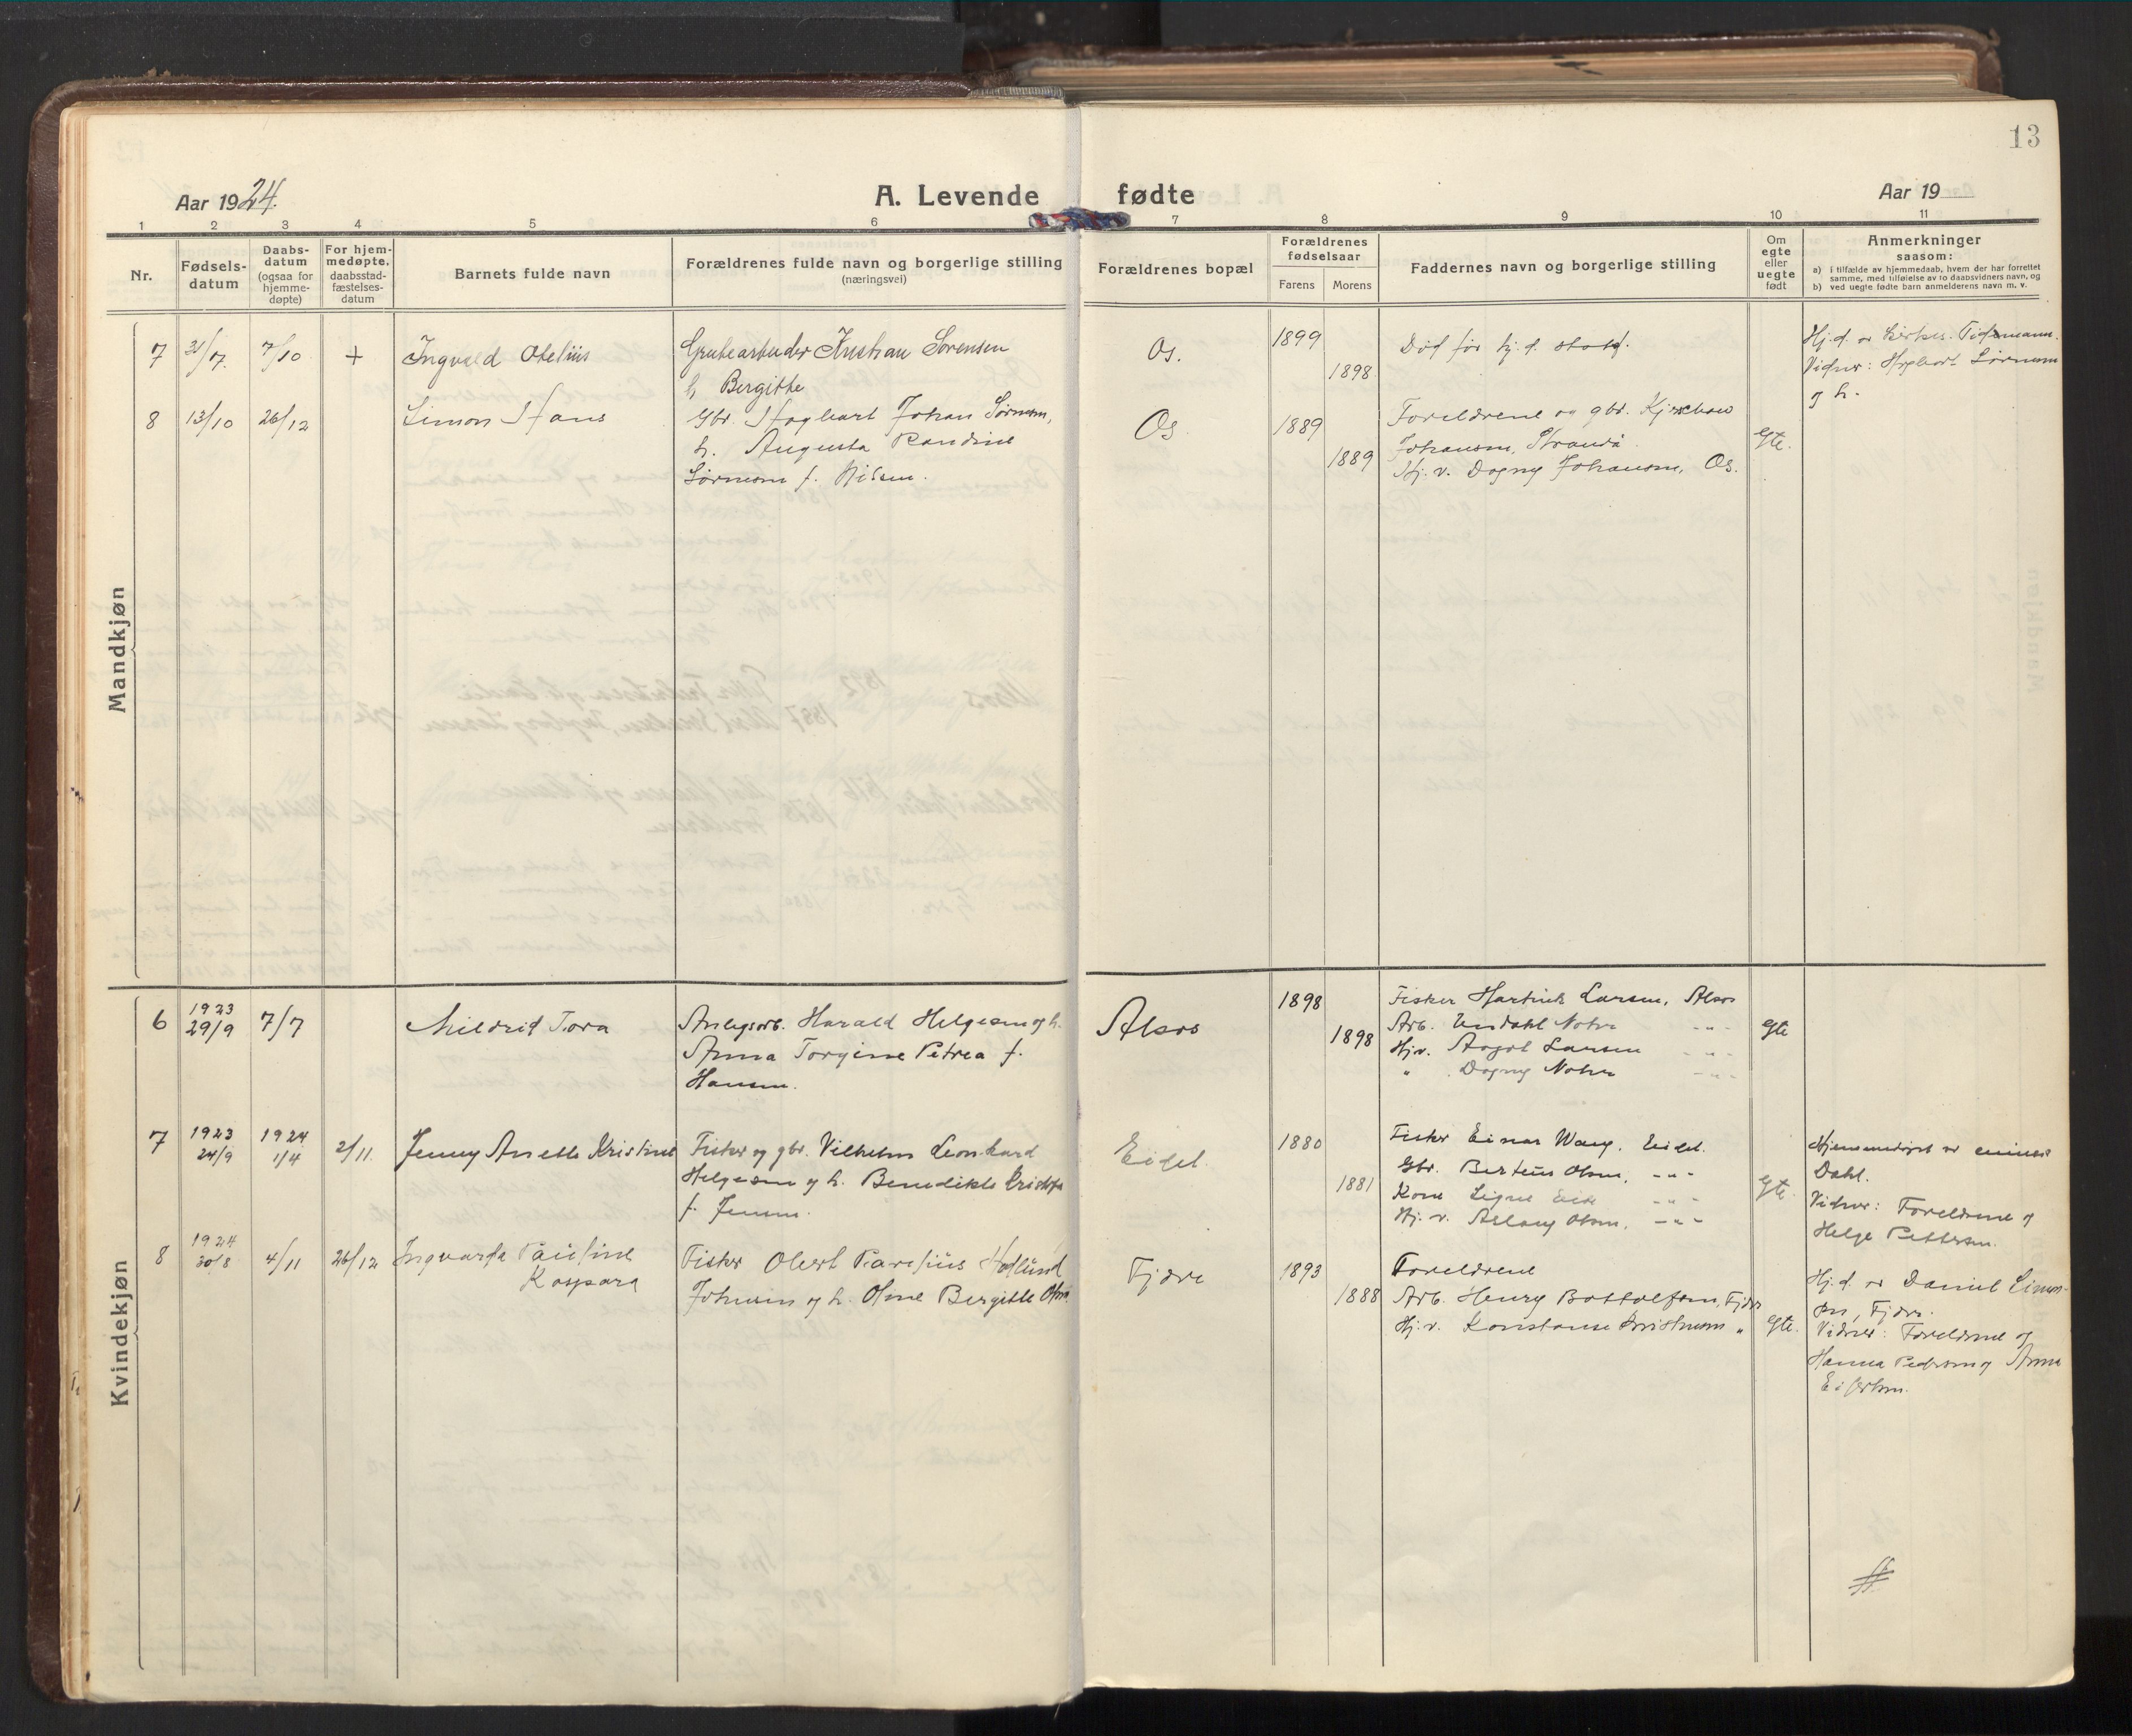 13
Aar 1924.
A. Levende fødte
Aar 19
1 2 3 4 5 6 7 8 9 10 11
Nr.
Fødsels-
datum
Daabs-
datum
(ogsaa for
hjemme-
døpte)
For hjem-
medøpte.
daabsstad-
fæstelses-
datum
Barnets fulde navn
Forældrenes fulde navn og borgerlige stilling
(næringsvei)
Forældrenes bopæl
Forældrenes
fødselsaar
Farens
Morens
Faddernes navn og borgerlige stilling
Om
egte
eller
uegte
født
Anmerkninger
saasom:
a) i tilfælde av hjemmedaab, hvem der har forrettet
samme, med tilføielse av to daabsvidners navn, og
b) ved uegte fødte barn anmelderens navn m. v.
Mandkjøn
7 31/7. 7/10 + Ingvald Otelius
Grubearbeider Kristian Sørensen
h. Bergitte
Os.
1899
1898
Død før hj. d. stadf.
Hj. d. av Tidemann.
Vidner: Hagbart Sørensen
og h.
8 13/10 26/12 Simon Hans
Gbr. Hagbart Johan Sørensen,
h. Augusta Randine
Sørensen f. Nilsen.
Os
1889
1889
Foreldrene og gbr.
Johansen, Strandå.
Hj. v. Dagny Johansen, Os.
Egte.
Kvindekjøn
6 1923
29/9 7/7 Mildrid Tora
Anlegsarb. Harald Helgesen og h.
Anna Torgine Petrea f.
Hansen.
Alsos
1898
1898
Fisker Hartvik Larsen, Alsos
Arb. Notvr - " -
Hj. v. Aagot Larsen - " -
" Dagny - " -
Egte
7 1923
24/9 1924
1/4 2/11. Jenny Anette Kristine
Fisker og gbr. Vilhelm Leonhard
Helgesen og h. Benedikte
f. Jensen.
Eidet.
1880
1881
Fisker Einar Wang, Eidet.
Gbr. Berteus Olsen, - " -
Kone Signe - " -
Hj. v. Aslaug Olsen, - " -
Egte.
Hjemmedøpt av
Dahl.
Vidner: Foreldrene og
Helge Pettersen.
8 1924
30/8 4/11 26/12 Ingvarda Pauline
Kaspara
Fisker Obert Parelius Hedlund
Johnsen og h. Oline Bergitte Olsen.
Fjære
1893
1888
Foreldrene
Arb. Henry Bottolfsen, Fjære
Hj. v. Konstanse Kristensen "
Egte.
Hj. d. av Daniel Simon-
sen, Fjære.
Vidner: Foreldrene og
Hanna Pedersen og Anna